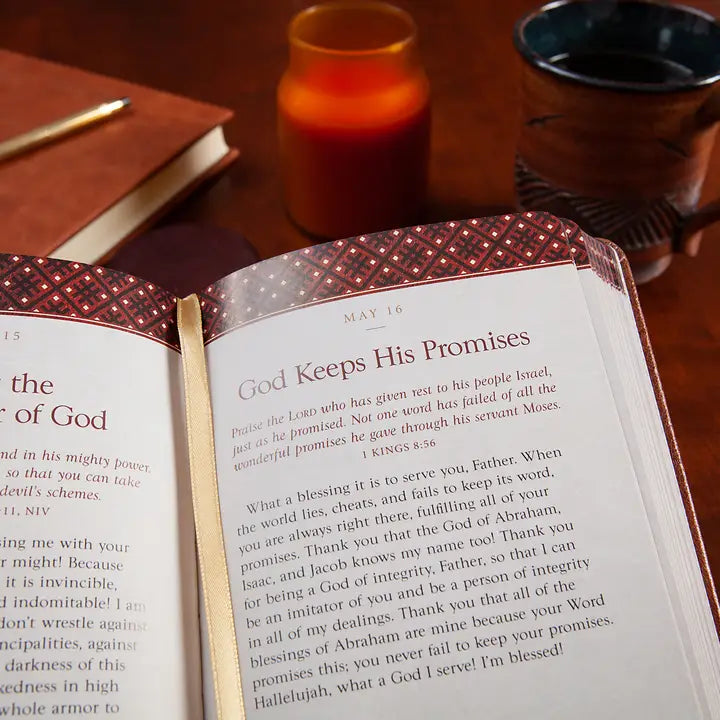 15
the
of God
in his mighty power,
so that you can take
devil's schemes.
:11, NIV
me with your
might! Because
it is invincible,
indomitable! I am
don't wrestle against
against
darkness of this
in high
whole armor to
MAY 16
God Keeps His Promises
Praise the LORD who has given rest to his people Israel,
just as he promised. Not one word has failed of all the
wonderful promises he gave through his servant Moses.
1 KINGS 8:56
What a blessing it is to serve you, Father. When
the world lies, cheats, and fails to keep its word,
you are always right there, fulfilling all of your
promises. Thank you that the God of Abraham,
Isaac, and Jacob knows my name too! Thank you
for being a God of integrity, Father, so that I can
be an imitator of you and be a person of integrity
in all of my dealings. Thank you that all of the
blessings of Abraham are mine because your Word
promises this; you never fail to keep your promises.
Hallelujah, what a God I serve! I'm blessed!